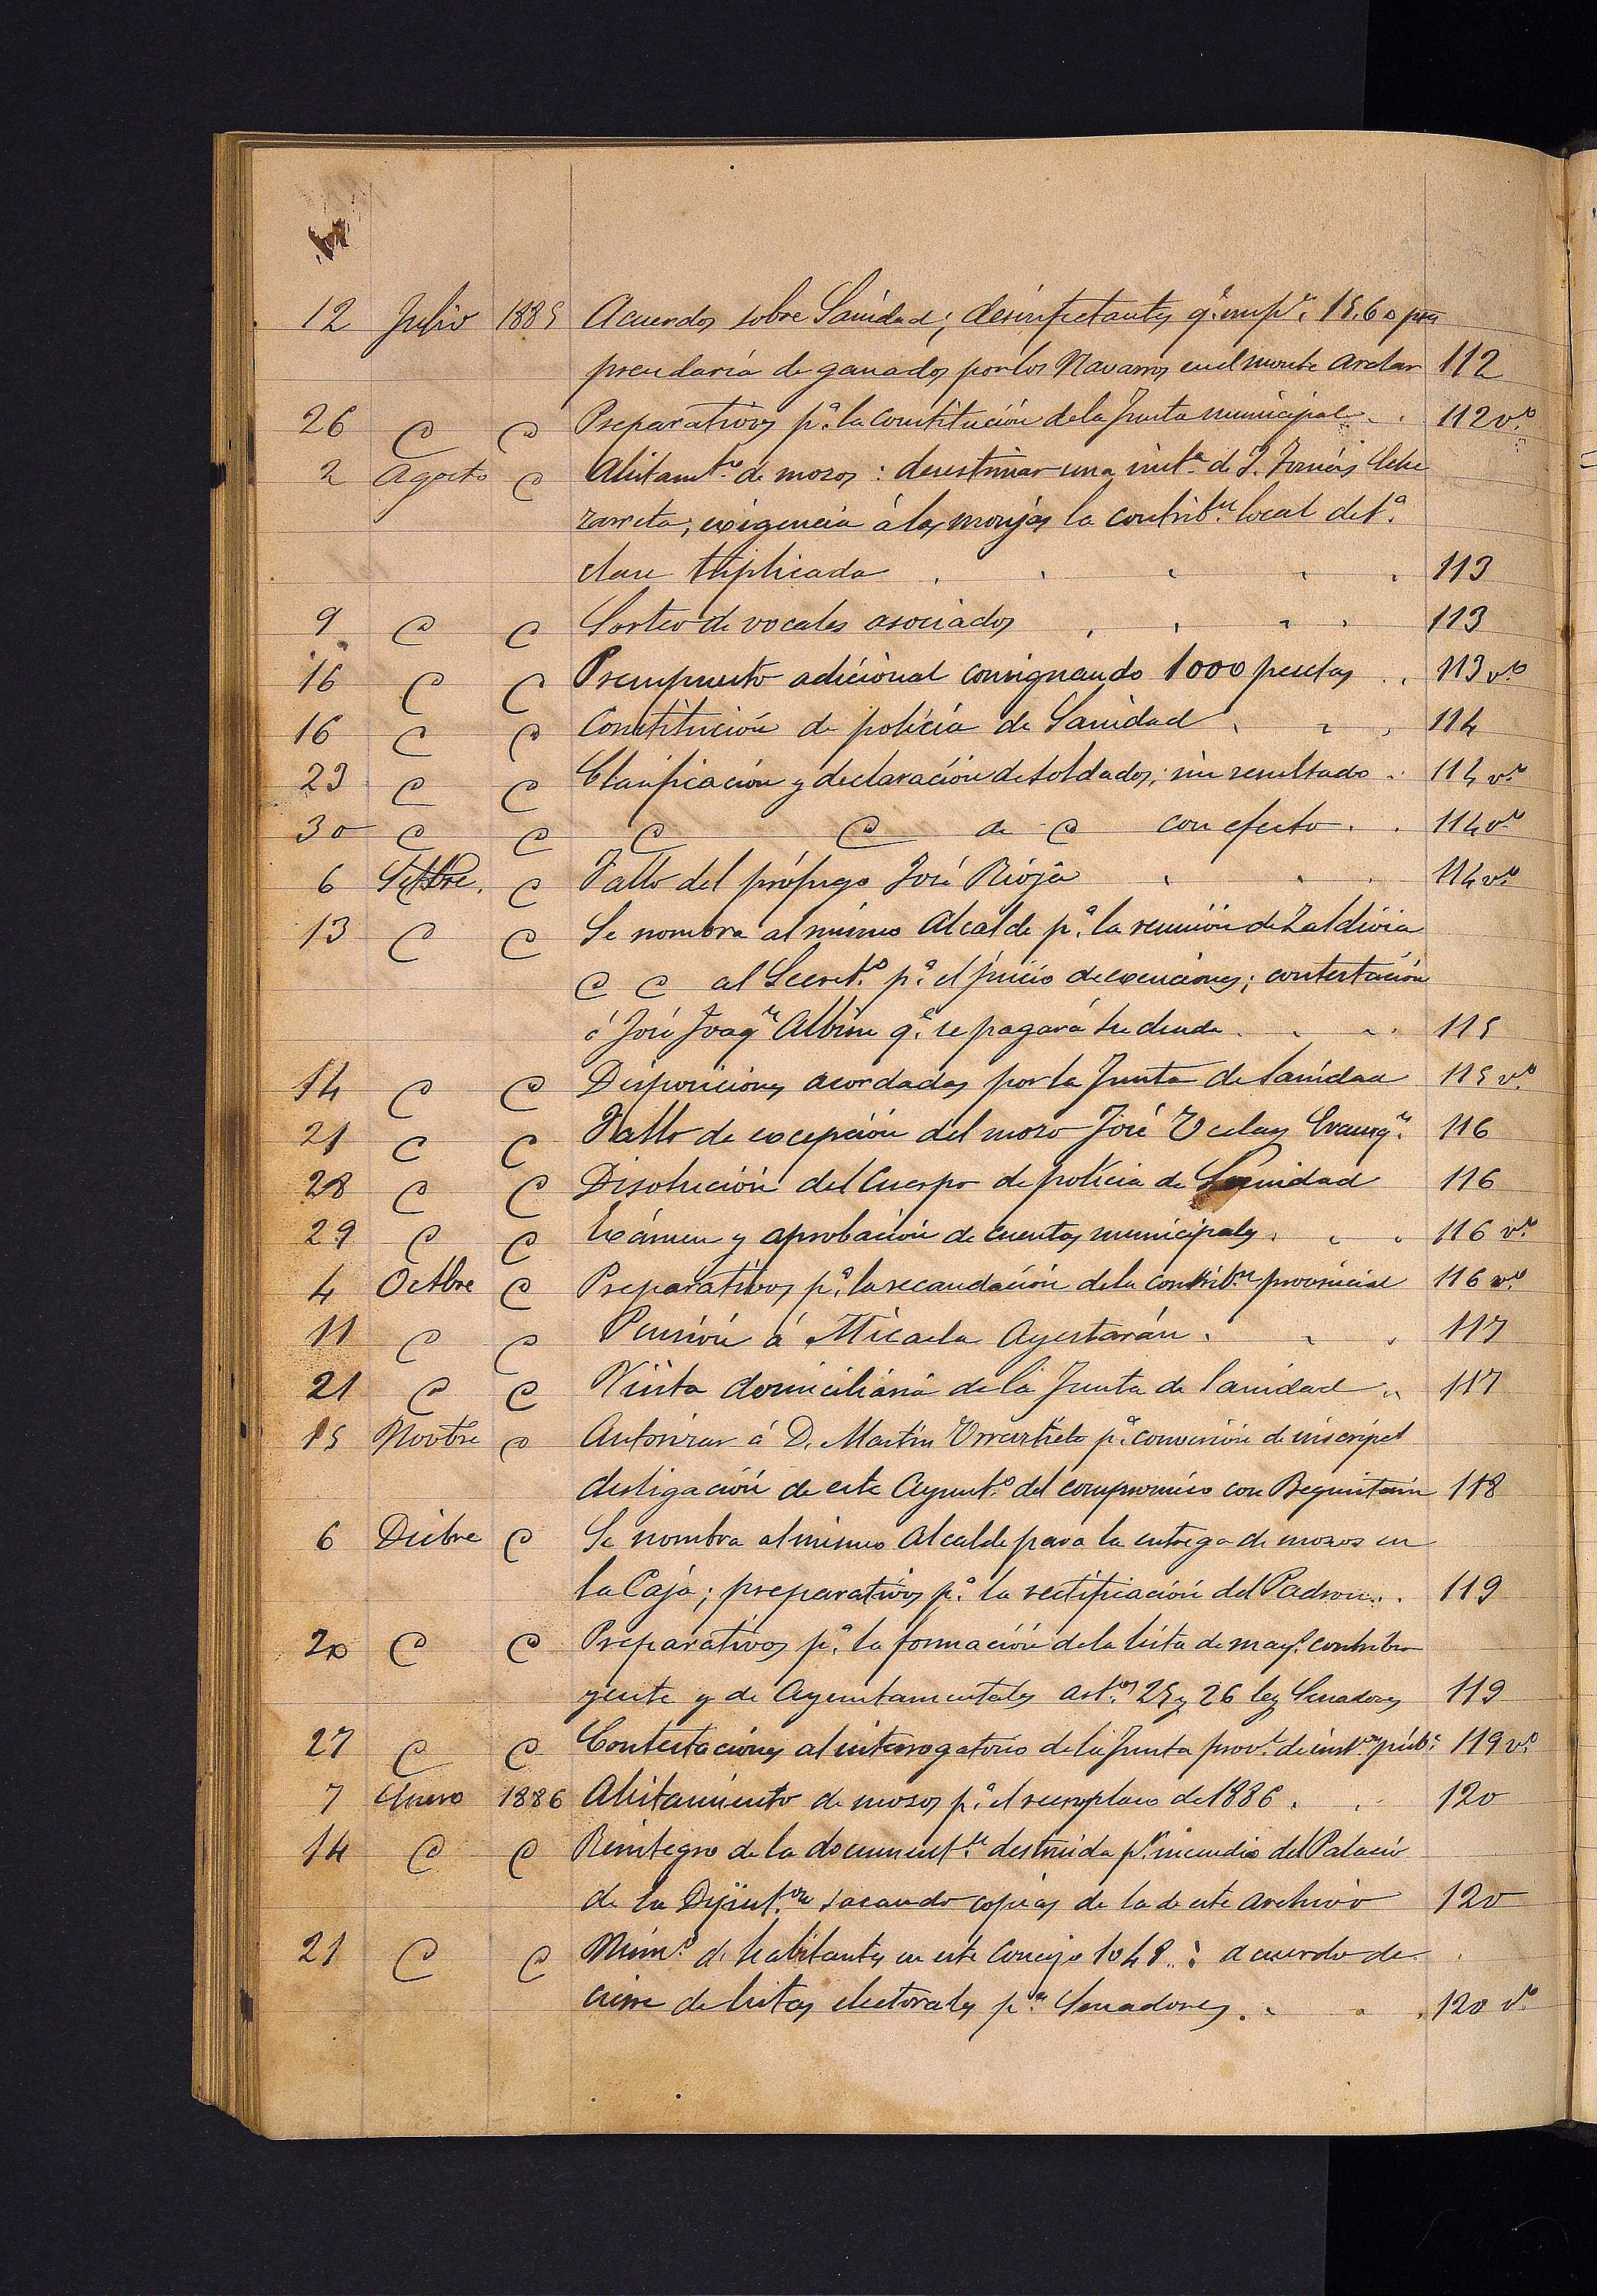 12 Julio 1885 Acuerdos sobre Sanidad; desinfectantes q.e imp.n 15,60 pta
prendaria de ganados por los Navarros en el monte Aralar 112
26 @ @ Preparativos p.a la constitución de la Junta municipal . . 112 v.to
2 Agosto @ Alistam.to de mozos: desestimar una inst.a de J. Tomás Eche
zarreta; exigencia á las monjas la contrib.on local de 1.a
clase triplicada . . . . . 113
9 @ @ Sorteo de vocales asociados . . . . 113
16 @ @ Presupuesto adicional consignando 1000 pesetas . . 113 v.to
16 @ @ Constitución de policía de Sanidad . . . 114
23 @ @ Clasificación y declaración de soldados; sin resultado . . 114 v.to
30 @ @ @ @ de @ con efecto . . 114 v.to
6 Setbre. @ Fallo del prófugo José Rioja . . . 114 v.to
13 @ @ Se nombra al mismo Alcalde p.a la reunión de Zaldivia
@ @ al Secret.o p.a el juicio de exenciones; contestación
á José Joaq.n Albisu q.e se pagará su deuda . . . . 115
14 @ @ Disposiciones acordadas por la Junta de Sanidad 115 v.to
21 @ @ Fallo de excepción del mozo José 116
28 @ @ Disolución del Cuerpo de policía de Sanidad 116
29 @ @ Exámen y aprobación de cuentas municipales . . . 116 v.to
4 Octbre @ Preparativos p.a la recaudación de la contrib.on provincial 116 v.to
11 @ @ Pensión á Micaela Ayestarán . . . 117
21 @ @ Visita domiciliaria de la Junta de Sanidad . . 117
15 Novbre @ Autorizar á D. Martin p.a conversión de inscripct
desligación de este Ayunt.o del compromiso con Beguiristain 118
6 Dicbre @ Se nombra al mismo Alcalde para la entrega de mozos en
la Caja; preparativos p.a la rectificación del Padron . . 119
20 @ @ Preparativos p.a la formación de la lista de may.s contribu
yente y de Ayuntamentales art.os 25 y 26 ley Senadores 119
27 @ @ Contestaciones al interrogatorio de la Junta prov.l de inst.on púb.a 119 v.to
7 Enero 1886 Alistamiento de mozos p.a el reemplazo de 1886 . . . 120
14 @ @ Reintegro de la document.n destruida p.r incendio del Palacio
de la Diput.on sacando copias de la de este archivo 120
21 @ @ Núm.o de habitantes en este Concejo 1048 .: acuerdo de
cierre de listas electorales p.a Senadores . . . . 120 v.to